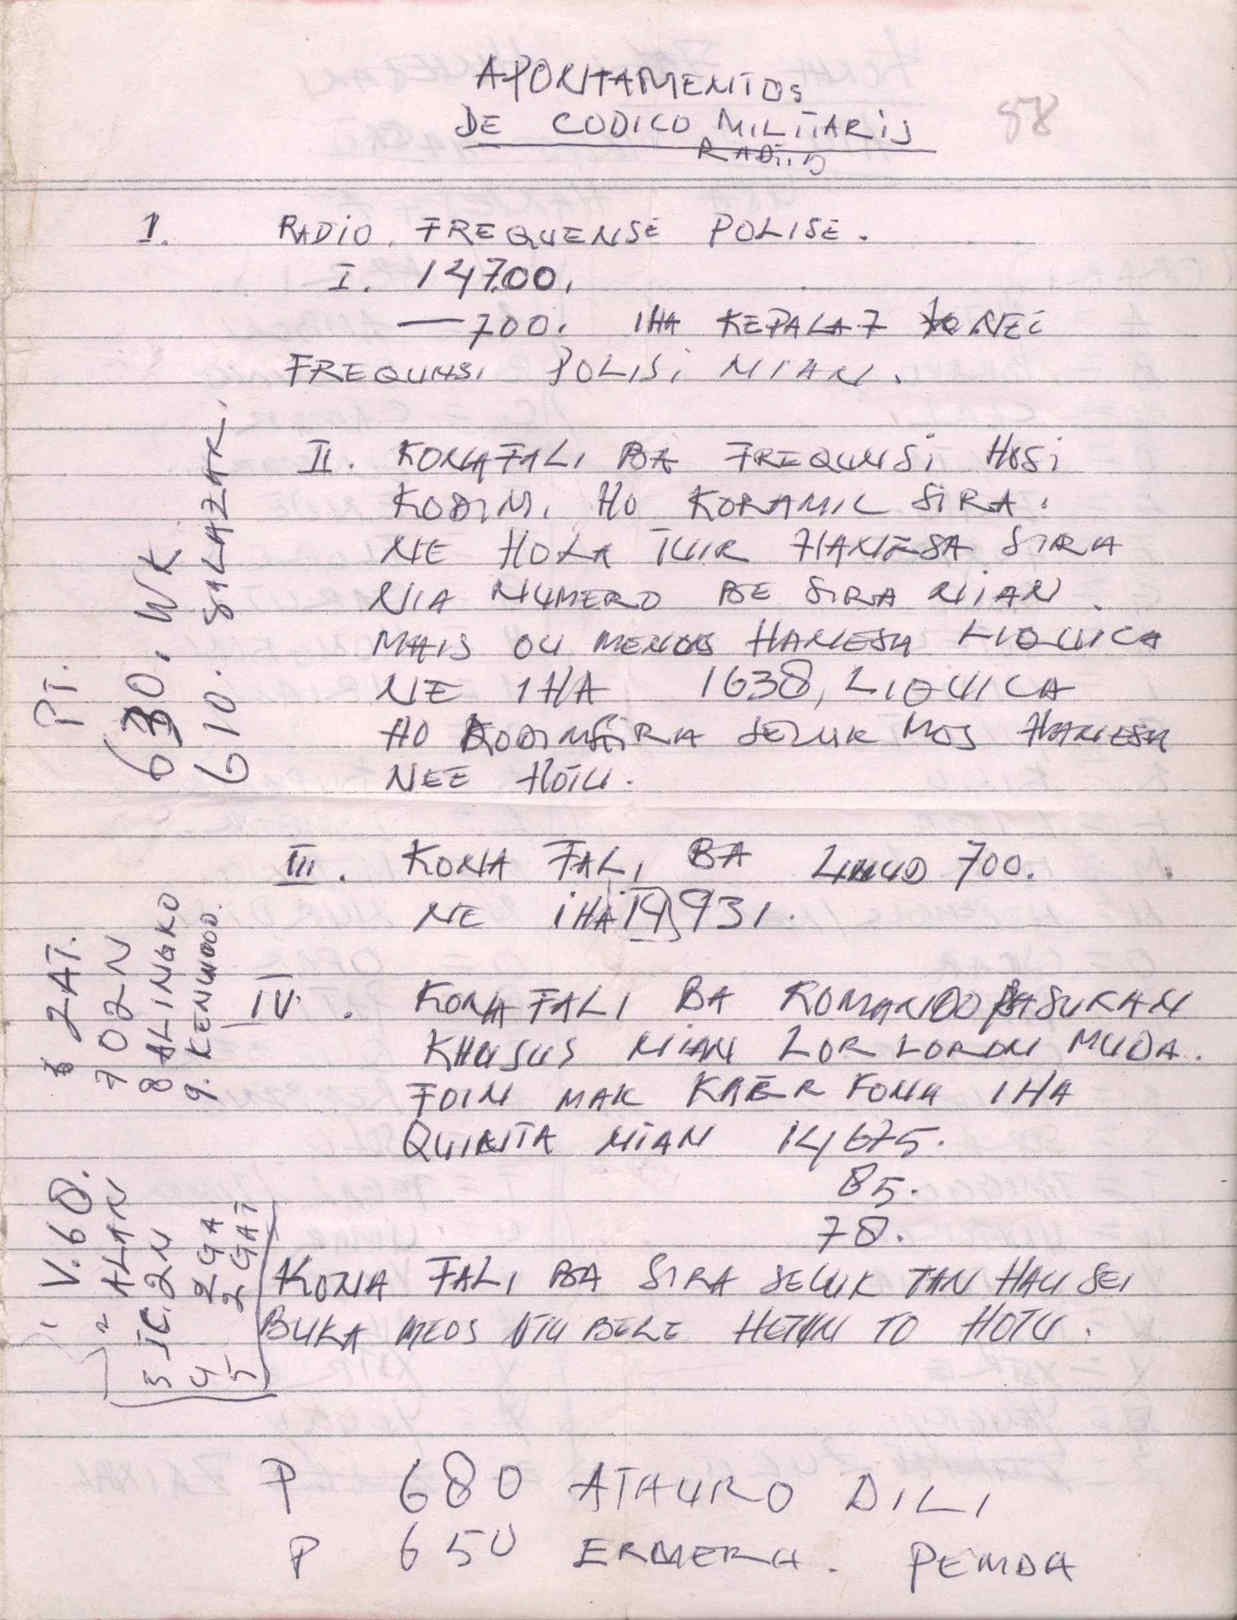 APONTAMENTOS
DE CODICO MILITARIJ
RADiiO
88
1. RADiO. FREQUENSE POLISE.
I. 147.00.
— 700. IHA KEPALA 7 NEE
FREQUNSI POLISI NIAN.
II. KONAFALI BA FREQUNSI HOSI
KODIM. HO KORAMIL SIRA.
NE HOLA TUIR HANESA SIRA
NIA NUMERO BE SIRA NIAN.
MAIS OU MENOS HANESA LIQUICA
NE IHA 1638, LIQUICA
HO KODIM SIRA SELUK MOS HANESA
NEE HOTU.
III. KONA FALI BA 700.
NE IHA 14,931.
IV. KONA FALI BA KOMANDO PASUKAN
KHUSUS NIAN LOR LORON MUDA.
FOIN MAK KAER FONA IHA
QUINTA NIAN 14,675.
85.
78.
KONA FALI BA SIRA SELUK TAN HAU SEI
BUKA MEOS HETUN TO HOTU.
P 680 ATAURO DILI
P 650 ERMERA. PEMDA
PT.
630. WK
610. SALAZAR.
2AT.
7 02N
8 ALINGKO
9. KENWOOD.
1 V.68.
2 ALAN
3 IC.2N
4 2GA
5 2GAT